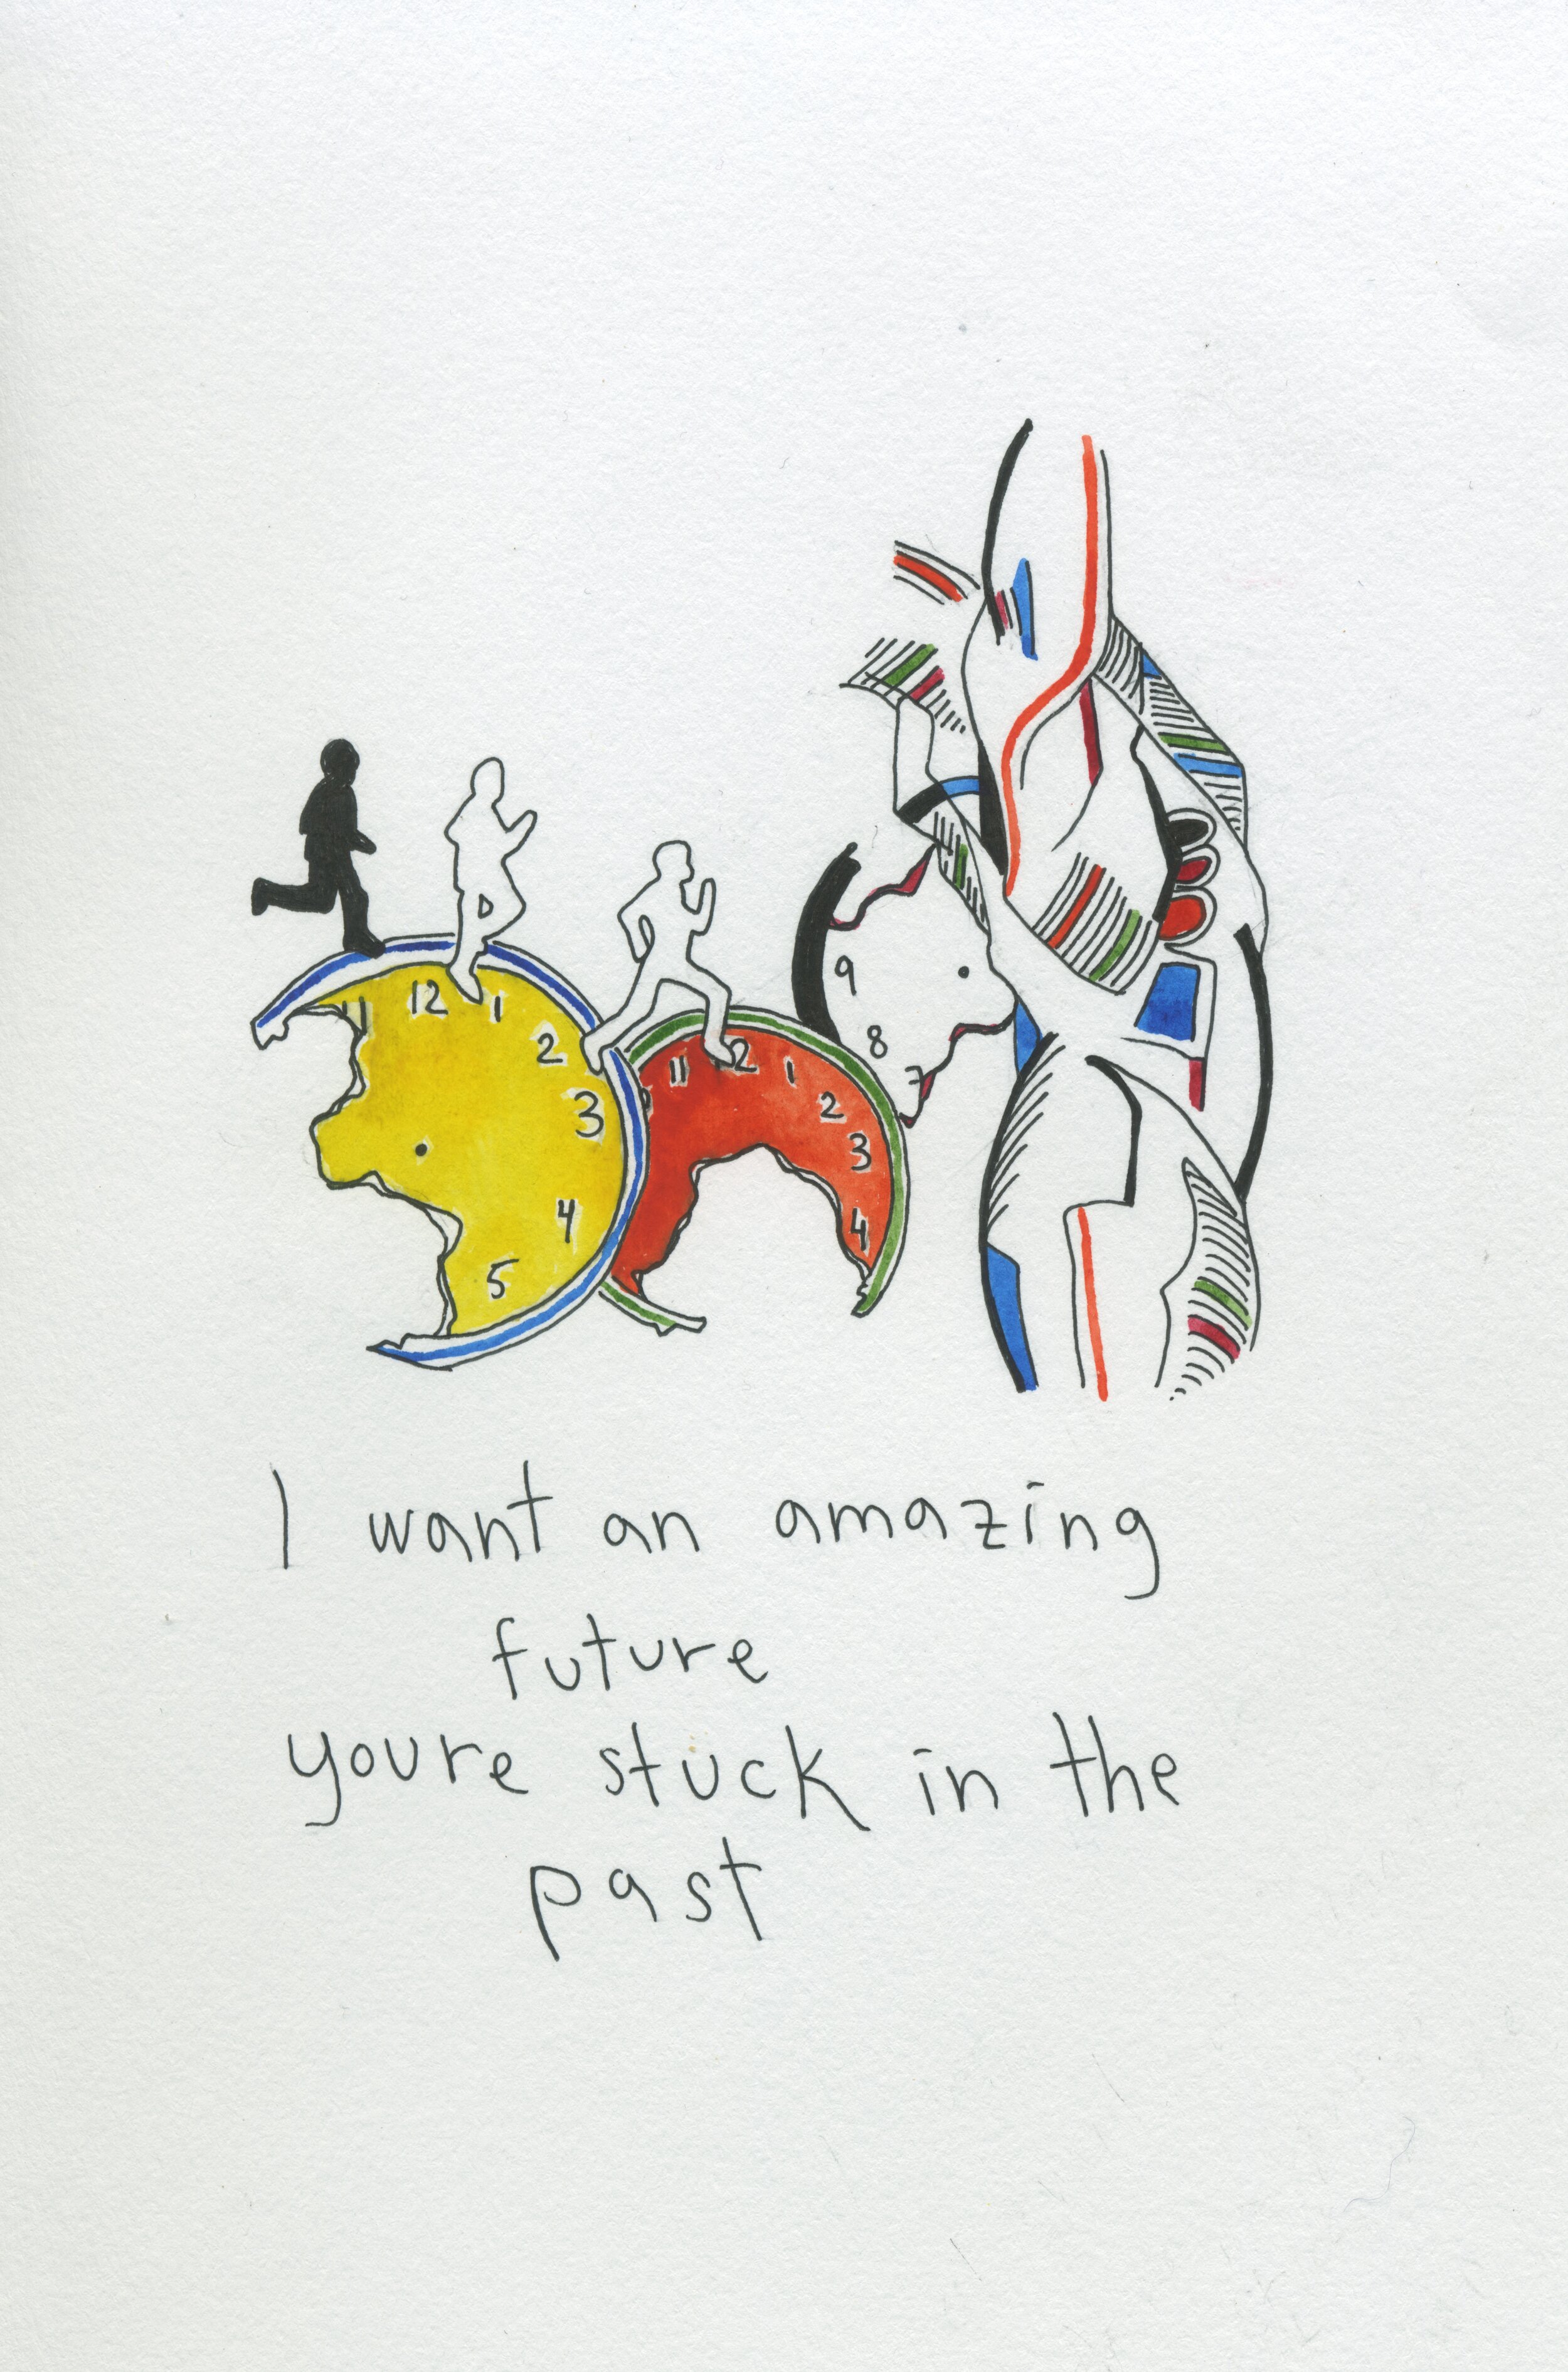 11 12 1
2
3
4
5
11 12 1
2
3
4
9
8
7
I want an amazing
future
youre stuck in the
past